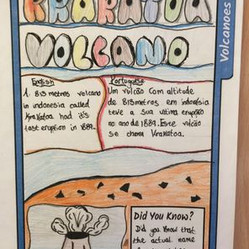 KRAKATOA
VOLCANO
Volcanoes
English
A 813 metres volcano
in indonesia called
Krakatoa had it's
last eruption in 1889.
Portuguese
Um vulcão com altitude
de 813metros em Indonésia
teve a sua ultima erupção
no ano de 1889. Esse vulcão
se chama Krakatoa.
Did You Know?
Did you know that
the actual name